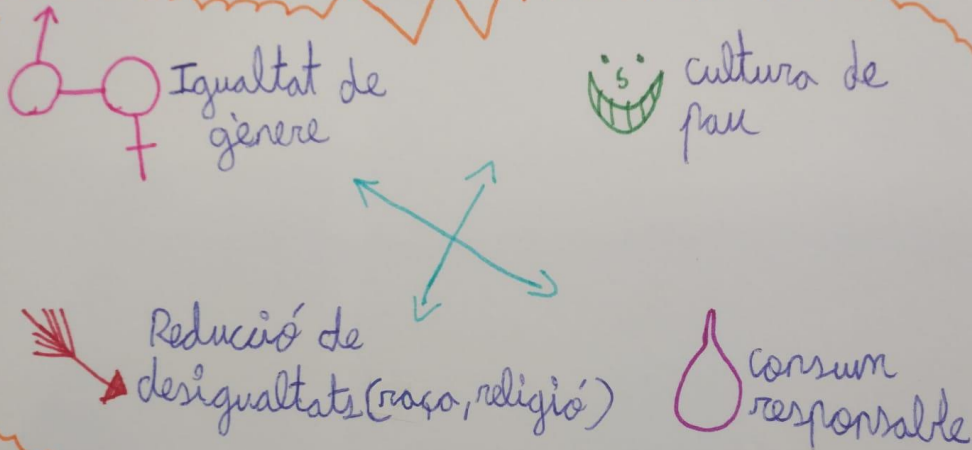 Igualtat de
gènere
cultura de
pau
Reducció de
desigualtats (raça, religió)
consum
responsable